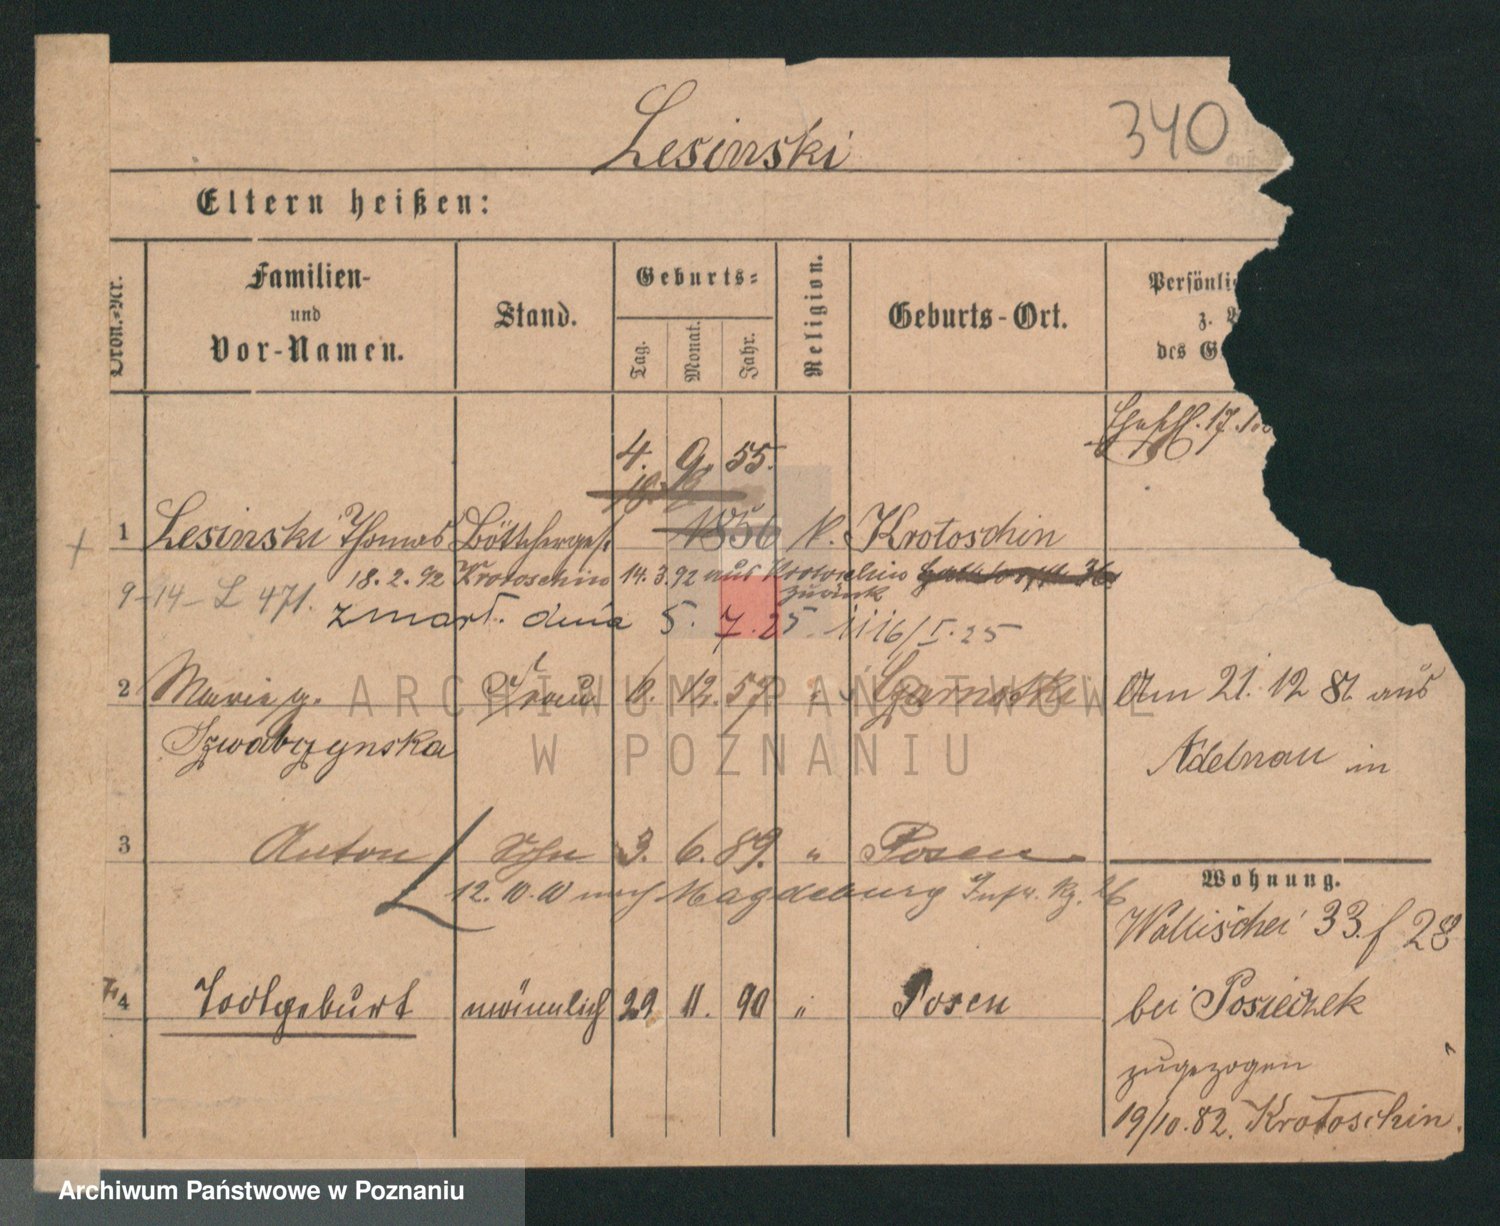 340
Lesinski
Eltern heißen:
Familien- und Vor-Namen.
Stand.
Geburts-
Tag. Monat. Jahr.
Religion.
Geburts-Ort.
Persönli
z.
des G
17.
4. 9. 55.
1 Lesinski Thomas Böttcherges. 1856 k. Krotoschin
18.2.92 Krotoschin 14.3.92 aus Krotoschin
zurück
9-14- L 471.
zmarł. dnia 5. 7. 25 16/I. 25
2 Marie g. Frau 12. 57 " Am 21. 12 81 aus
Szwabzynska Adelnau in
3 Anton Sohn 3. 6. 89. " Posen
Wohnung.
12. 10. 10 nach Magdeburg Infr. Rg. 26
Wallischei 33. f 28
4 Todtgeburt männlich 29 11. 90 " Posen
bei Posieczek
zugezogen
19/10. 82. Krotoschin.
ARCHIWUM PAŃSTWOWE
W POZNANIU
Archiwum Państwowe w Poznaniu